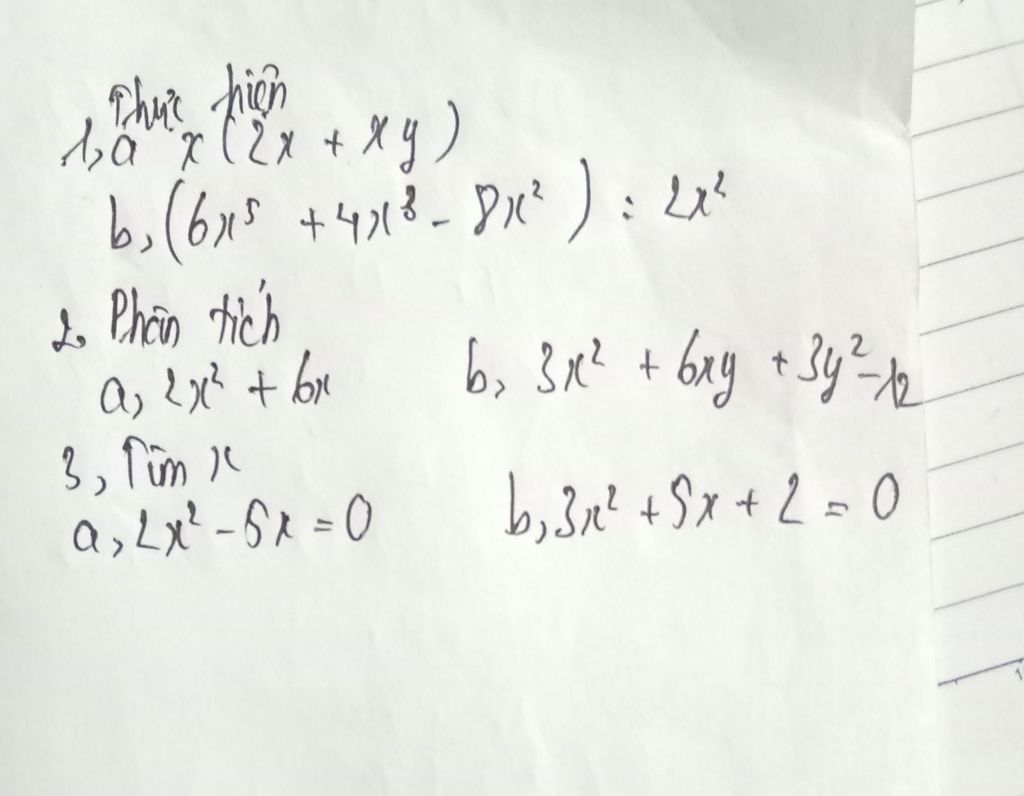 Thực hiện
1, a x(2x + xy)
b, (6x⁵ + 4x³ - 8x²) : 2x²
2, Phân tích
a, 2x² + 6x b, 3x² + 6xy + 3y² - 12
3, Tìm x
a, 2x² - 5x = 0 b, 3x² + 5x + 2 = 0